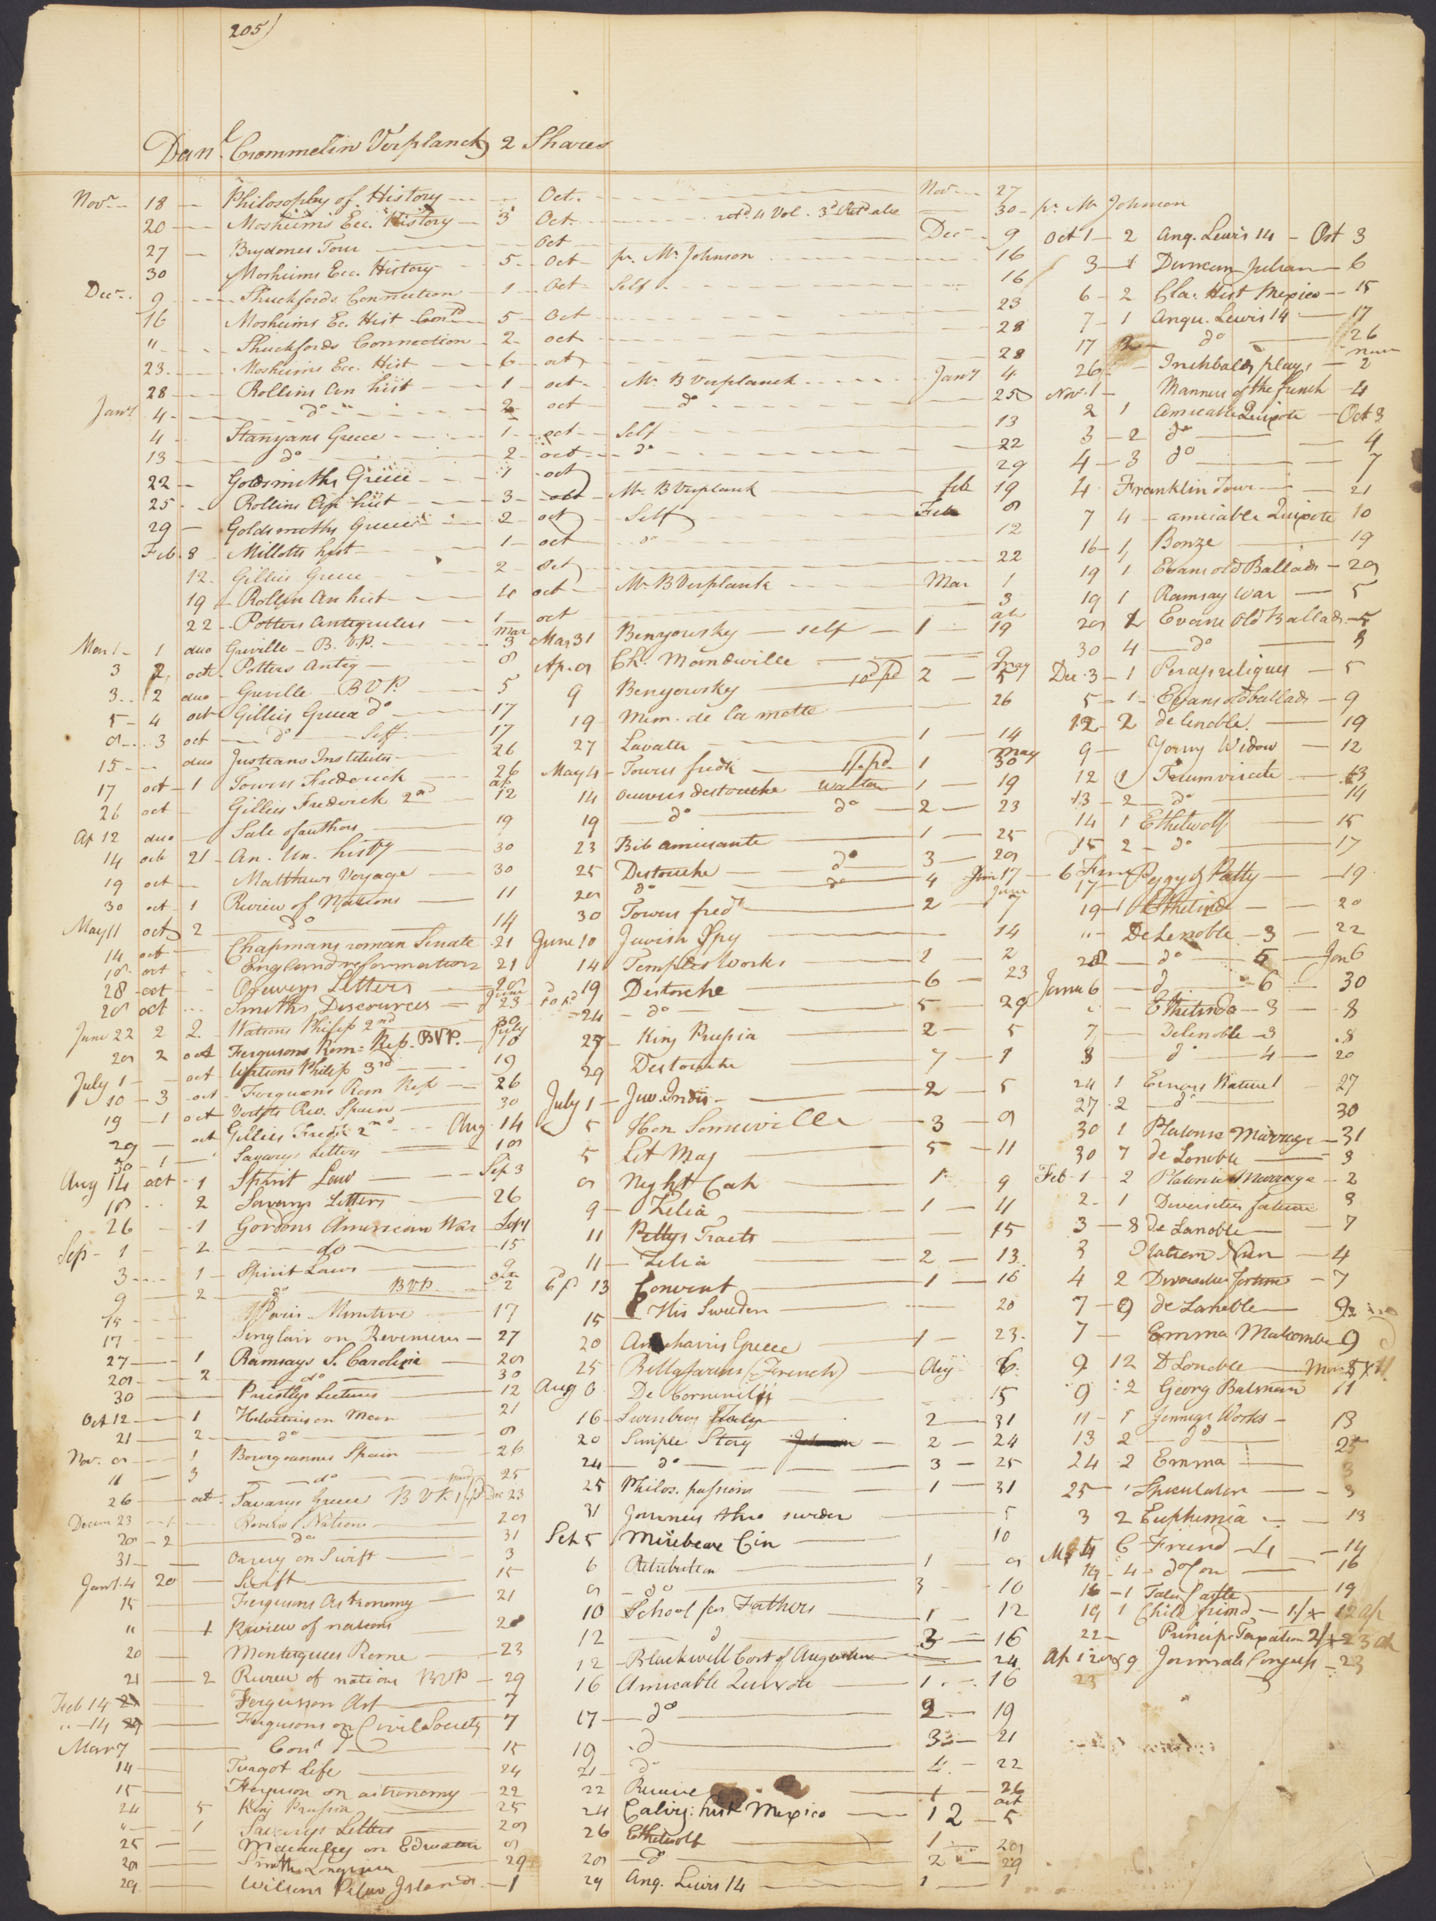 205)
Danl. Crommelin Verplanck 2 Shares
Novr 18 Philosophy of History Oct. Novr 27
20 Mosheims Ecc. History 3 Oct. 30 pr Mr Johnson
27 Brydones Tour Oct Decr 9
30 Mosheims Ecc. History 5 Oct pr. Mr Johnson 16
Decr 9 Shuckfords Connection 1 Oct Self 16
16 Mosheims Ec. Hist Contd 5 Oct 23
" Shuckfords Connection 2 oct 28
23 Mosheims Ecc. Hist 6 oct 28
28 Rollins An hist 1 oct Mr B Verplanck Jany 4
Jany 4 do 2 oct do 25
4 Stanyans Greece 1 oct Self 13
13 do 2 oct do 22
22 Goldsmiths Greece 1 oct 29
25 Rollins An hist 3 oct Mr B Verplank feb 19
29 Goldsmiths Greece 2 oct Self Feb 8
Feb. 8 Millotts hist 1 oct do 12
12 Gillies Greece 2 oct 22
19 Rollin An hist 10 oct Mr B Verplank Mar 1
22 Potters Antiquities 1 oct 3
Mar 1 1 duo Greville B. V.P. 3
3 2 oct Potters Antiq 8
3 2 duo Greville B V P. 5
5 4 oct Gillies Greece do 17
8 3 oct do Self 17
15 duo Justians Institutes 26
17 oct 1 Towers Frederick 26
26 oct Gillies Frederick 2nd ap 12
Ap 12 duo Sale of authors 19
14 oct 21 An. Un. histy 30
19 oct Matthews Voyage 30
30 oct 1 Review of Nations 11
May 11 oct 2 do 14
14 oct Chapmans roman Senate 21
18 oct England reformation 21
28 oct Orewerys Letters 28
28 oct Smiths Discources June 23
June 22 2 2 Watsons Philip 2nd 30
28 2 oct Fergusons Rom: Rep. BVP. July 10
July 1 oct Watsons Philip 3rd 19
10 3 oct Fergusons Rom Rep 26
19 1 oct Vertots Rev. Spain 30
29 oct Gillies Fredk 2nd Aug 14
30 1 Savarys Letters 18
Aug 14 oct 1 Spirit Law Sep 3
18 2 Savarys Letters 26
26 1 Gordons American War Sepr
Sep 1 2 do 15
3 1 Spirit Laws 9
9 2 do B V P. 2
15 Minature 17
17 Singlair on Revenues 27
27 1 Ramsays S. Carolina 28
28 2 do 30
30 Priestlys Lectures 12
Oct 12 1 Helvetius on Man 21
21 2 do 8
Nov. 8 1 Bourgoannes Spain 26
11 3 do 25
26 oct Savarys Greece B V P. Dec 23
Decem 23 1 Review Nations 28
28 2 do 31
31 Orrery on Swift 3
Jany 4 20 Swift 15
15 Fergusons Astronomy 21
" 1 Review of nations 20
20 Montesques Rome 23
21 2 Review of nations BVP 29
Feb 14 Fergusson Ast 7
" 14 Fergusons on Civil Society 7
Mar 7 Cond do 15
14 Turgot Life 24
15 Ferguson on astronomy 22
24 5 King Prussia 25
" 1 Savarys Letters 28
25 Macauley on Education 8
28 Smiths Longinus 29
29 Wilsons Pelew Islands 1
Mar 31 Benyowsky self 1 ap 19
Ap. 8 Ch. Mandeville 9
9 Benyowsky 2 May 5
19 Mem. de la motte 26
27 Lavater 1 14
May 4 Towers fredk 1 May 30
14 Oeuvres destouche Walton 1 19
19 do do 2 23
23 Bib amusante 1 25
25 Destouche do 3 28
28 do do 4 June 17
30 Towers fredk 2 June 7
June 10 Jewish Spy 14
14 Temples Works 1 2
19 Destouche 6 23
24 do 5 29
27 King Prussia 2 5
29 Destouche 7 1
July 1 Juv. Indis 2 5
5 Hon Somerville 3 9
5 Lit Mag 5 11
8 Night Cap 1 9
9 Zelia 1 11
11 Pettys Tracts 15
11 Zelia 2 13
13 Convent 1 16
15 His Sweden 20
20 Anacharsis Greece 1 23
25 Bellasarius (French) Aug 6
Aug 6 De Corneville 15
16 Swinburg Italy 2 31
20 Simple Story 2 24
24 do 3 25
25 Philos. passions 1 31
31 Journeis thro sweden 5
Set 5 Mirebeau Cin 10
6 Retribution 1 8
8 do 3 10
10 School for Fathers 1 12
12 d 3 16
12 Blackwell Cort of Augustus 24
16 Amicable Quixote 1 16
17 do 2 19
19 do 3 21
21 do 4 22
22 Recuice 1 26
24 Calvig: hist Mexico 1 2 oct 5
26 Ethelwolf 1 28
28 do 2 29
29 Ang. Lewis 14 1 1
Oct 1 2 Ang. Lewis 14 Oct 3
3 1 Duncan Julian 6
6 2 Cla. Hist Mexico 15
7 1 Anqu. Lewis 14 17
17 2 do 26
26 Inchbalds plays Nov 2
Nov. 1 Manners of the french 4
2 1 Amicable Quixote Oct 3
3 2 do 4
4 3 do 7
4 Franklin Tour 21
7 4 amicable Quixote 10
16 1 Bonze 19
19 1 Evans old Ballads 28
19 1 Ramsay War 5
28 2 Evans Old Ballads 5
30 4 do 8
Dec 3 1 Percys reliques 5
5 1 Evans old ballads 9
12 2 de Lenoble 19
9 Young Widow 12
12 1 Triumvirate 13
13 2 do 14
14 1 Ethelwolf 15
15 2 do 17
17 Peggy & Patty 19
19 1 Ethelinde 20
" DeLenoble 3 22
28 do 5 Jan 6
Janua 6 d 6 30
" Ethelinda 3 8
7 Delenoble 3 8
8 do 4 20
24 1 Errors Nature 27
27 2 do 30
30 1 Platonic Marriage 31
30 7 de Lenoble 3
Feb 1 2 Platonic Marriage 2
2 1 Diversities fortune 3
3 8 de Lanoble 7
3 Nun 4
4 2 Diversities fortune 7
7 9 de Lanoble 9
7 Emma Malcombe 9
9 12 D Lonoble
9 2 Georg Batman 11
11 1 Jennings Works 13
13 2 do 25
24 2 Emma 3
25 1 Speculator 3
3 2 Euphemia 13
6 Friend 14
14 4 do 16
16 1 Tales Castle 19
19 1 Child friend 12 ap
22 Princip: Taxation 23
Ap 1 9 Journals Congress 23
23